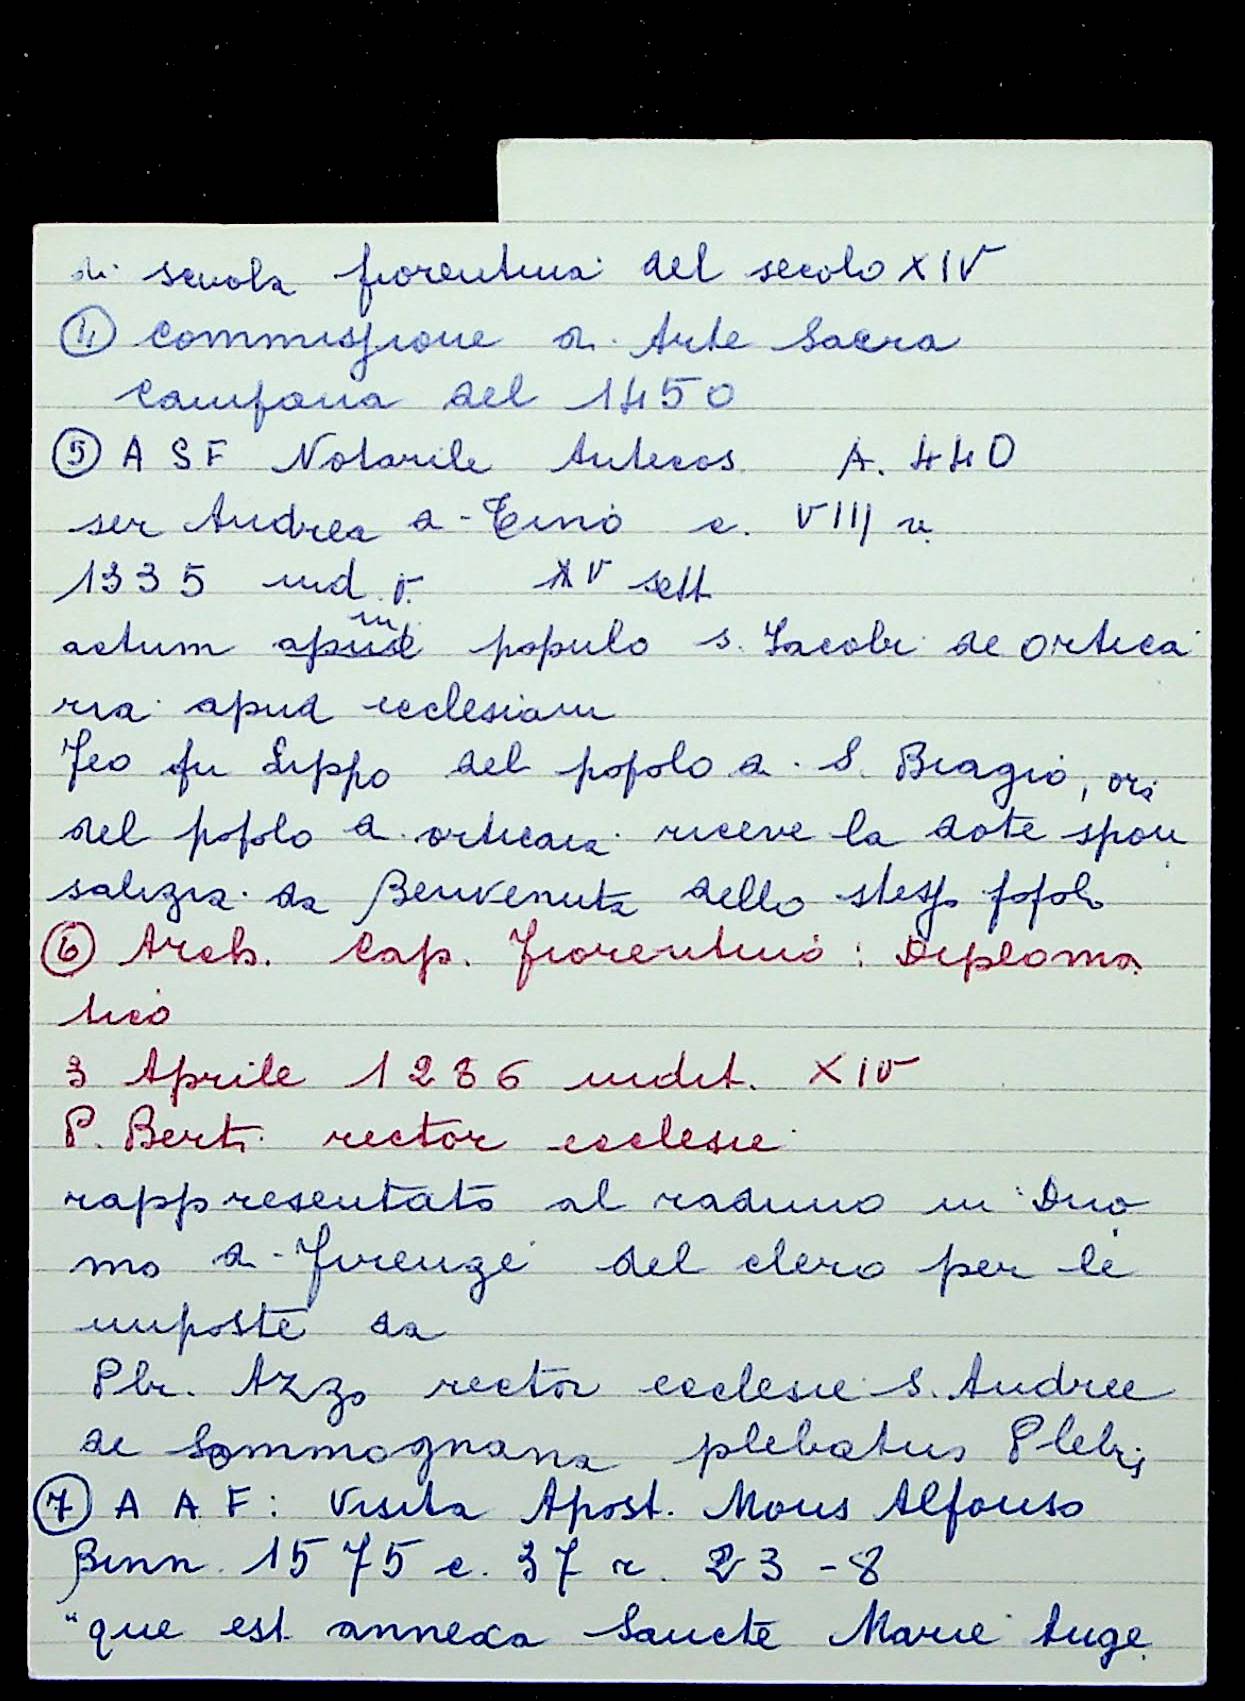 di scuola fiorentina del secolo XIV
④ Commissione di Arte Sacra
Campana del 1450
⑤ A S F Notarile Antecos. A. 440
ser Andrea di Tino c. VIII v.
1335 ind. V. XV sett
actum apud in populo s. Jacobi de Ortica
ria apud ecclesiam
Feo fu Lippo del popolo di S. Biagio, ora
del popolo di orticaia riceve la dote spon
salizia da Benvenuta dello stesso popolo
⑥ Arch. Cap. Fiorentino: Diploma
tico
3 Aprile 1286 indit. XIV
P. Berti rector ecclesie
rappresentato al raduno in Duo
mo di Firenze del clero per le
imposte da
Pbr. Azzo rector ecclesie S. Andree
de Sommognana plebatus Plebis
⑦ A A F: Visita Apost. Mons Alfonso
Binn. 1575 c. 37 r. 23-8
"que est annexa Sancte Marie Ange